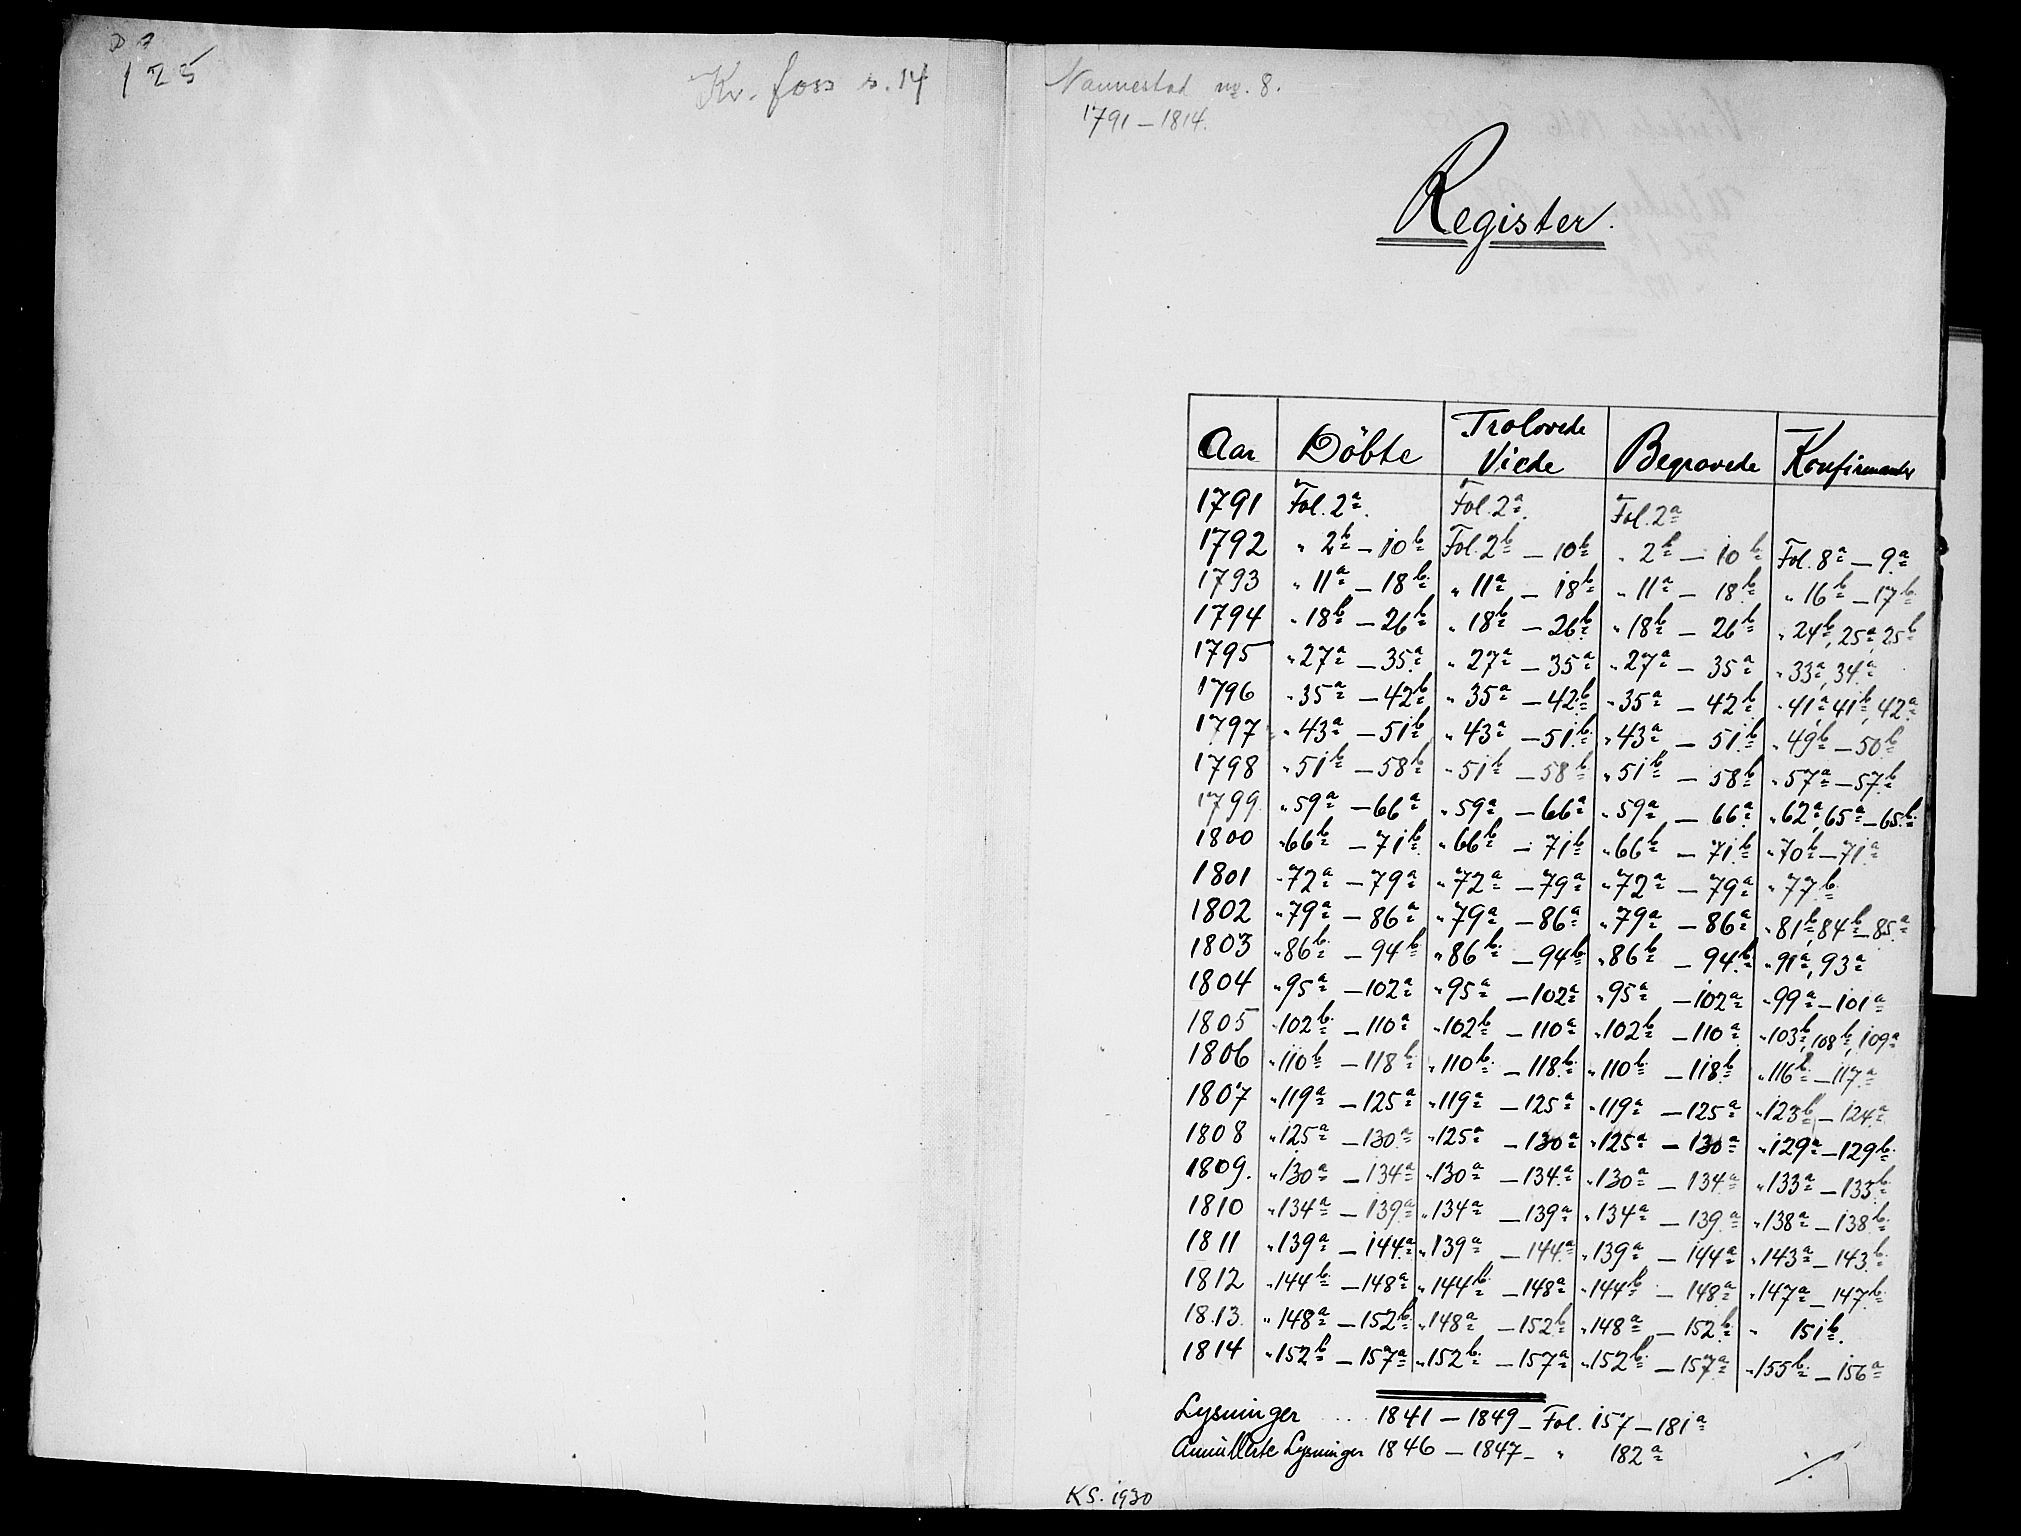 125
Kr. foss s. 14
Nannestad nr. 8.
1791 – 1814.
Register.
Aar Döbte Trolovede Viede Begravede Konfirmanter
1791 Fol. 2a. Fol. 2a. Fol. 2a
1792 " 2b – 10b Fol. 2b – 10b " 2b – 10b Fol. 8a – 9a
1793 " 11a – 18b " 11a – 18b " 11a – 18b " 16b – 17b
1794 " 18b – 26b " 18b – 26b " 18b – 26b " 24b, 25a, 25b
1795 " 27a – 35a " 27a – 35a " 27a – 35a " 33a, 34a
1796 " 35a – 42b " 35a – 42b " 35a – 42b " 41a, 41b, 42a
1797 " 43a – 51b " 43a – 51b " 43a – 51b " 49b – 50b
1798 " 51b – 58b " 51b – 58b " 51b – 58b " 57a – 57b
1799 " 59a – 66a " 59a – 66a " 59a – 66a " 62a, 65a – 65b
1800 " 66b – 71b " 66b – 71b " 66b – 71b " 70b – 71a
1801 " 72a – 79a " 72a – 79a " 72a – 79a " 77b
1802 " 79a – 86a " 79a – 86a " 79a – 86a " 81b, 84b – 85a
1803 " 86b – 94b " 86b – 94b " 86b – 94b " 91a, 93a
1804 " 95a – 102a " 95a – 102a " 95a – 102a " 99a – 101a
1805 " 102b – 110a " 102b – 110a " 102b – 110a " 103b, 108b, 109a
1806 " 110b – 118b " 110b – 118b " 110b – 118b " 116b – 117a
1807 " 119a – 125a " 119a – 125a " 119a – 125a " 123b – 124a
1808 " 125a – 130a " 125a – 130a " 125a – 130a " 129a – 129b
1809. " 130a – 134a " 130a – 134a " 130a – 134a " 133a – 133b
1810 " 134a – 139a " 134a – 139a " 134a – 139a " 138a – 138b
1811 " 139a – 144a " 139a – 144a " 139a – 144a " 143a – 143b
1812 " 144b – 148a " 144b – 148a " 144b – 148a " 147a – 147b
1813. " 148a – 152b " 148a – 152b " 148a – 152b " 151b.
1814 " 152b – 157a " 152b – 157a " 152b – 157a " 155b – 156a
Lysninger .... 1841 – 1849 – Fol. 157 – 181a
Annullerte Lysninger 1846 – 1847 – " 182a
./.
KS. 1930